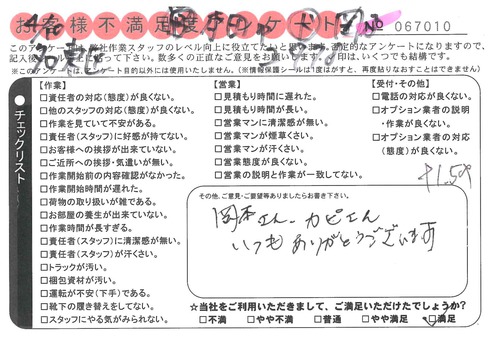 お客様不満足度アンケート
No 067010
このアンケートは、弊社作業スタッフのレベル向上に役立てたいと思います。否定的なアンケートになりますので、
記入後 数多くの正直なご意見をお願いします。印は、いくつでも結構です。
(※このアンケートは、アンケート目的以外には使用いたしません。)(※情報保護シールは1度はがすと、再度貼りなおすことはできません)
チェックリスト
【作業】
□責任者の対応(態度)が良くない。
□他のスタッフの対応(態度)が良くない。
□作業を見ていて不安がある。
□責任者(スタッフ)に好感が持てない。
□お客様への挨拶が出来ていない。
□ご近所への挨拶・気遣いが無い。
□作業開始前の内容確認がなかった。
□作業開始時間が遅れた。
□荷物の取り扱いが雑である。
□お部屋の養生が出来ていない。
□作業時間が長すぎる。
□責任者(スタッフ)に清潔感が無い。
□責任者(スタッフ)が汗くさい。
□トラックが汚い。
□梱包資材が汚い。
□運転が不安(下手)である。
□靴下の履き替えをしてない。
□スタッフにやる気がみられない。
【営業】
□見積もり時間に遅れた。
□見積もり時間が長い。
□営業マンに清潔感が無い。
□営業マンが煙草くさい。
□営業マンが汗くさい。
□営業態度が良くない。
□営業の説明と作業が一致してない。
【受付・その他】
□電話の対応が良くない。
□オプション業者の説明・作業が良くない。
□オプション業者の対応(態度)が良くない。
その他、ご意見・ご要望等ありましたらお書き下さい。
岡本さん、カピさん
いつもありがとうございます
☆当社をご利用いただきまして、ご満足いただけたでしょうか?
□不満 □やや不満 □普通 □やや満足 □満足